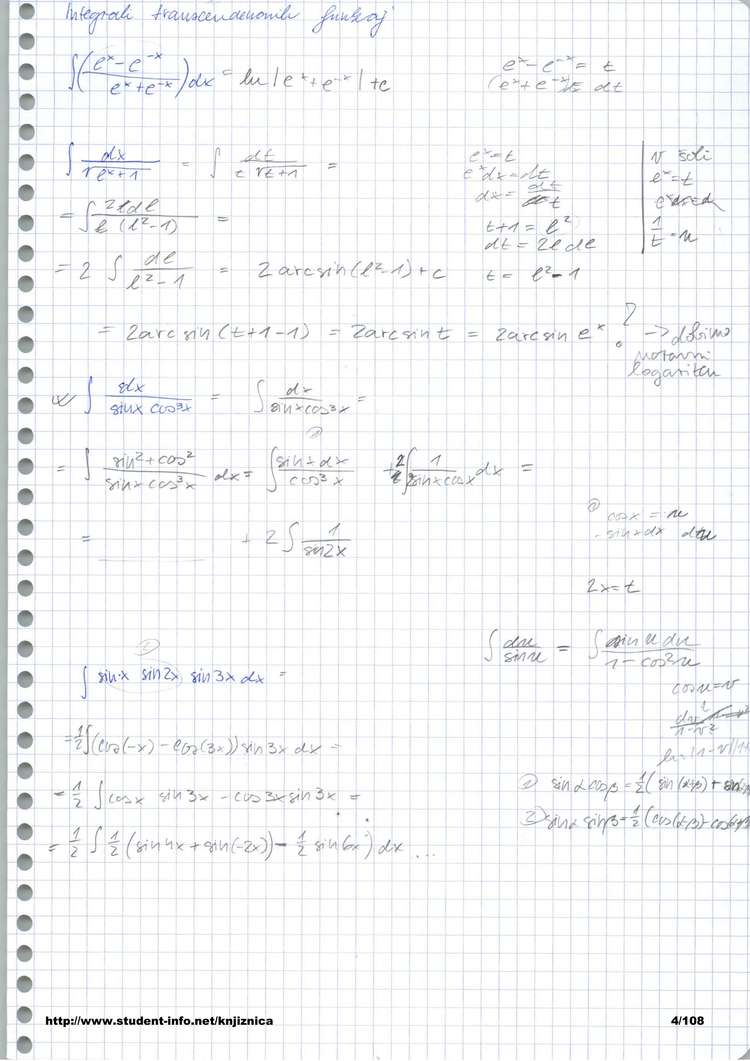 Integrali transcendentnih funkcij
∫((eˣ − e⁻ˣ)/(eˣ + e⁻ˣ))dx = ln|eˣ + e⁻ˣ| + c
eˣ − e⁻ˣ = t
∫ dx/√(eˣ+1) = ∫ dt/(t √(t+1)) =
eˣ = t
eˣdx = dt
t+1 = l²
dt = 2l dl
t = l² − 1
v šoli
eˣ = t
1/t = u
= ∫ 2l dl/(l (l² − 1)) =
= 2 ∫ dl/(l² − 1) = 2 arcsin(l² − 1) + c
= 2 arcsin (t+1−1) = 2 arcsin t = 2 arcsin eˣ ? → dobimo
naravni
logaritem
∫ dx/(sinx cos³x) = ∫ dx/(sinx cos³x) =
= ∫ (sin² + cos²)/(sinx cos³x) dx = ∫ sinx dx/cos³x + 2/2 ∫ 1/(sinx cosx) dx =
cosx = u
= + 2 ∫ 1/sin2x
2x = t
∫ du/sin u = ∫ sin u du/(1 − cos²u)
cos u = v
∫ sin x sin 2x sin 3x dx =
= ½ ∫(cos(−x) − cos(3x)) sin 3x dx =
= ½ ∫ cosx sin 3x − cos 3x sin 3x =
= ½ ∫ ½ (sin 4x + sin(−2x)) − ½ sin 6x) dx ...
① sinα cosβ = ½( sin(α+β) +
② sinα sinβ = ½(cos(α−β) −
http://www.student-info.net/knjiznica
4/108